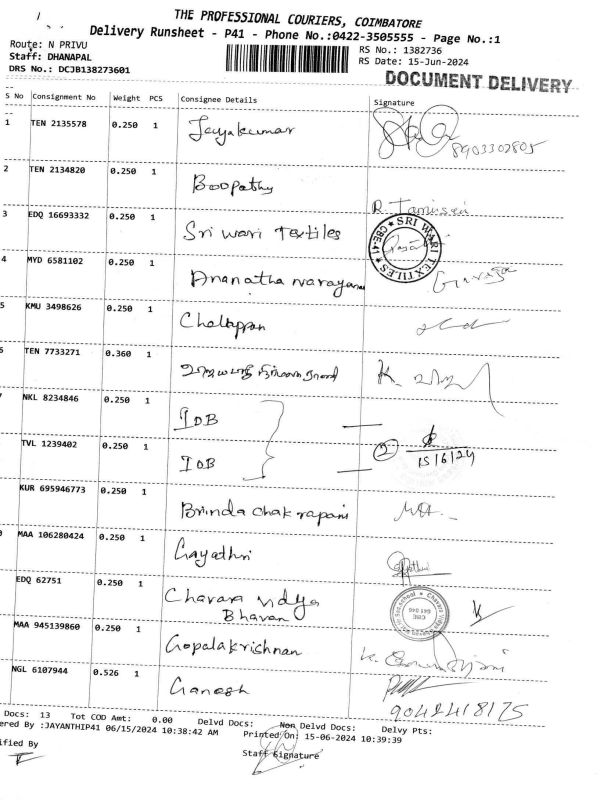 THE PROFESSIONAL COURIERS, COIMBATORE
Delivery Runsheet - P41 - Phone No.:0422-3505555 - Page No.:1
Route: N PRIVU
RS No.: 1382736
Staff: DHANAPAL
RS Date: 15-Jun-2024
DRS No.: DCJB138273601
DOCUMENT DELIVERY
S No Consignment No Weight PCS Consignee Details Signature
1 TEN 2135578 0.250 1 Jayakumar 8903302805
2 TEN 2134820 0.250 1 Boopathy
3 EDQ 16693332 0.250 1 Sri wari Textiles
SRI WARI TEXTILES CBE-41
4 MYD 6581102 0.250 1 Ananatha narayana
5 KMU 3498626 0.250 1 Chellappan
TEN 7733271 0.360 1 K.
NKL 8234846 0.250 1 IOB
TVL 1239402 0.250 1 IOB 2 15/6/24
KUR 695946773 0.250 1 Brinda chakrapani
MAA 106280424 0.250 1 Gayathri
EDQ 62751 0.250 1 Chavara vidya
Bhavan
MAA 945139860 0.250 1 Gopalakrishnan
NGL 6107944 0.526 1 Ganesh
9042418175
Docs: 13 Tot COD Amt: 0.00 Delvd Docs: Non Delvd Docs: Delvy Pts:
ered By :JAYANTHIP41 06/15/2024 10:38:42 AM Printed On: 15-06-2024 10:39:39
ified By
Staff Signature